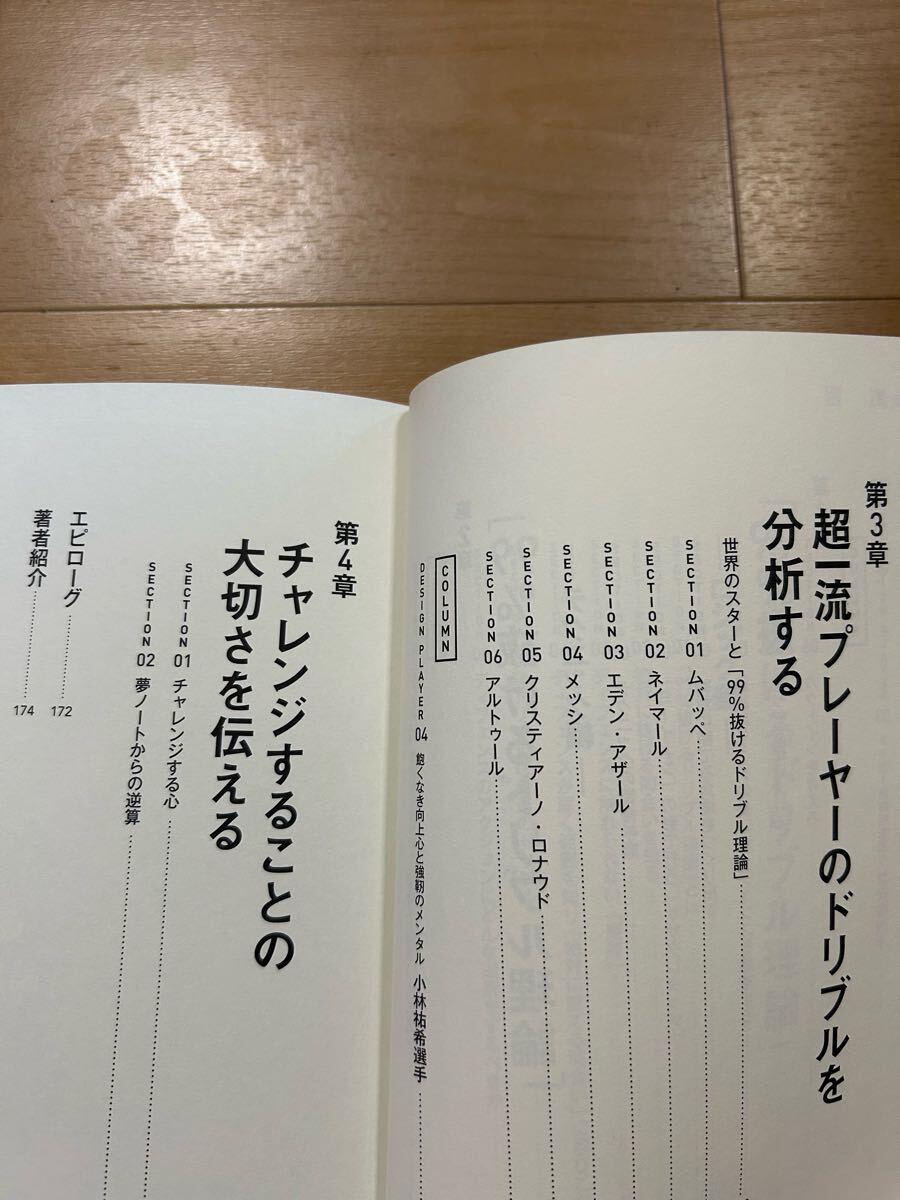 第3章
超一流プレーヤーのドリブルを
分析する
世界のスターと「99%抜けるドリブル理論」
SECTION 01 ムバッペ
SECTION 02 ネイマール
SECTION 03 エデン・アザール
SECTION 04 メッシ
SECTION 05 クリスティアーノ・ロナウド
SECTION 06 アルトゥール
COLUMN
DESIGN PLAYER 04 飽くなき向上心と強靭のメンタル 小林祐希選手
第4章
チャレンジすることの
大切さを伝える
SECTION 01 チャレンジする心
SECTION 02 夢ノートからの逆算
エピローグ 172
著者紹介 174